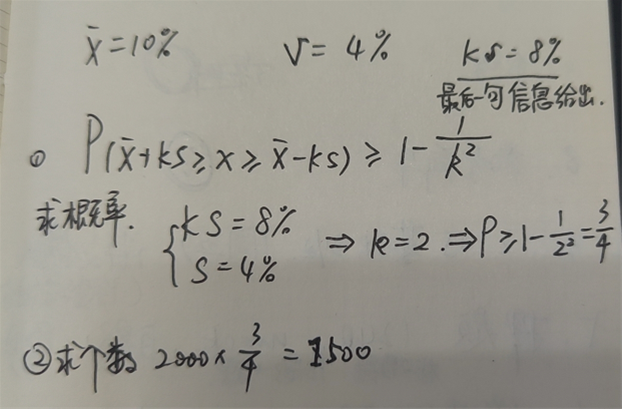 x̄=10%  σ=4%  kS=8%
最后一句信息给出.
① P(x̄+kS≥x≥x̄-kS)≥1-1/k²
求概率. {kS=8% S=4% ⇒ k=2.⇒P≥1-1/2²=3/4
②求个数 2000×3/4=1500